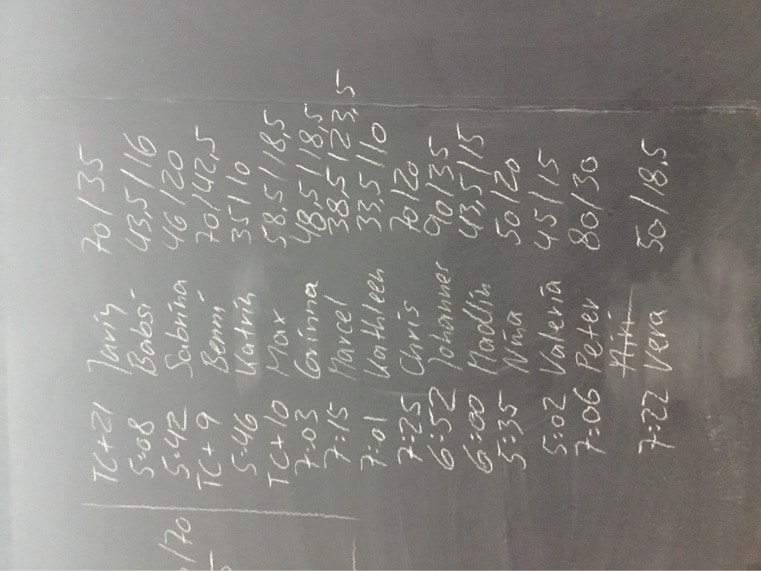 TC+21 Juriy 70/35
5:08 Babsi 43,5/16
5:42 Sabrina 46/20
TC+9 Benni 70/42,5
5:46 Katrin 35/10
TC+10 Max 58,5/18,5
7:03 Corinna 48,5/18,5
7:15 Marcel 38,5/23,5
7:01 Kathleen 33,5/10
7:25 Chris 70/20
6:52 Johannes 90/35
6:00 Madlin 43,5/15
5:35 Nina 50/20
5:02 Valeria 45/15
7:06 Peter 80/30
7:22 Vera 50/18,5
/70